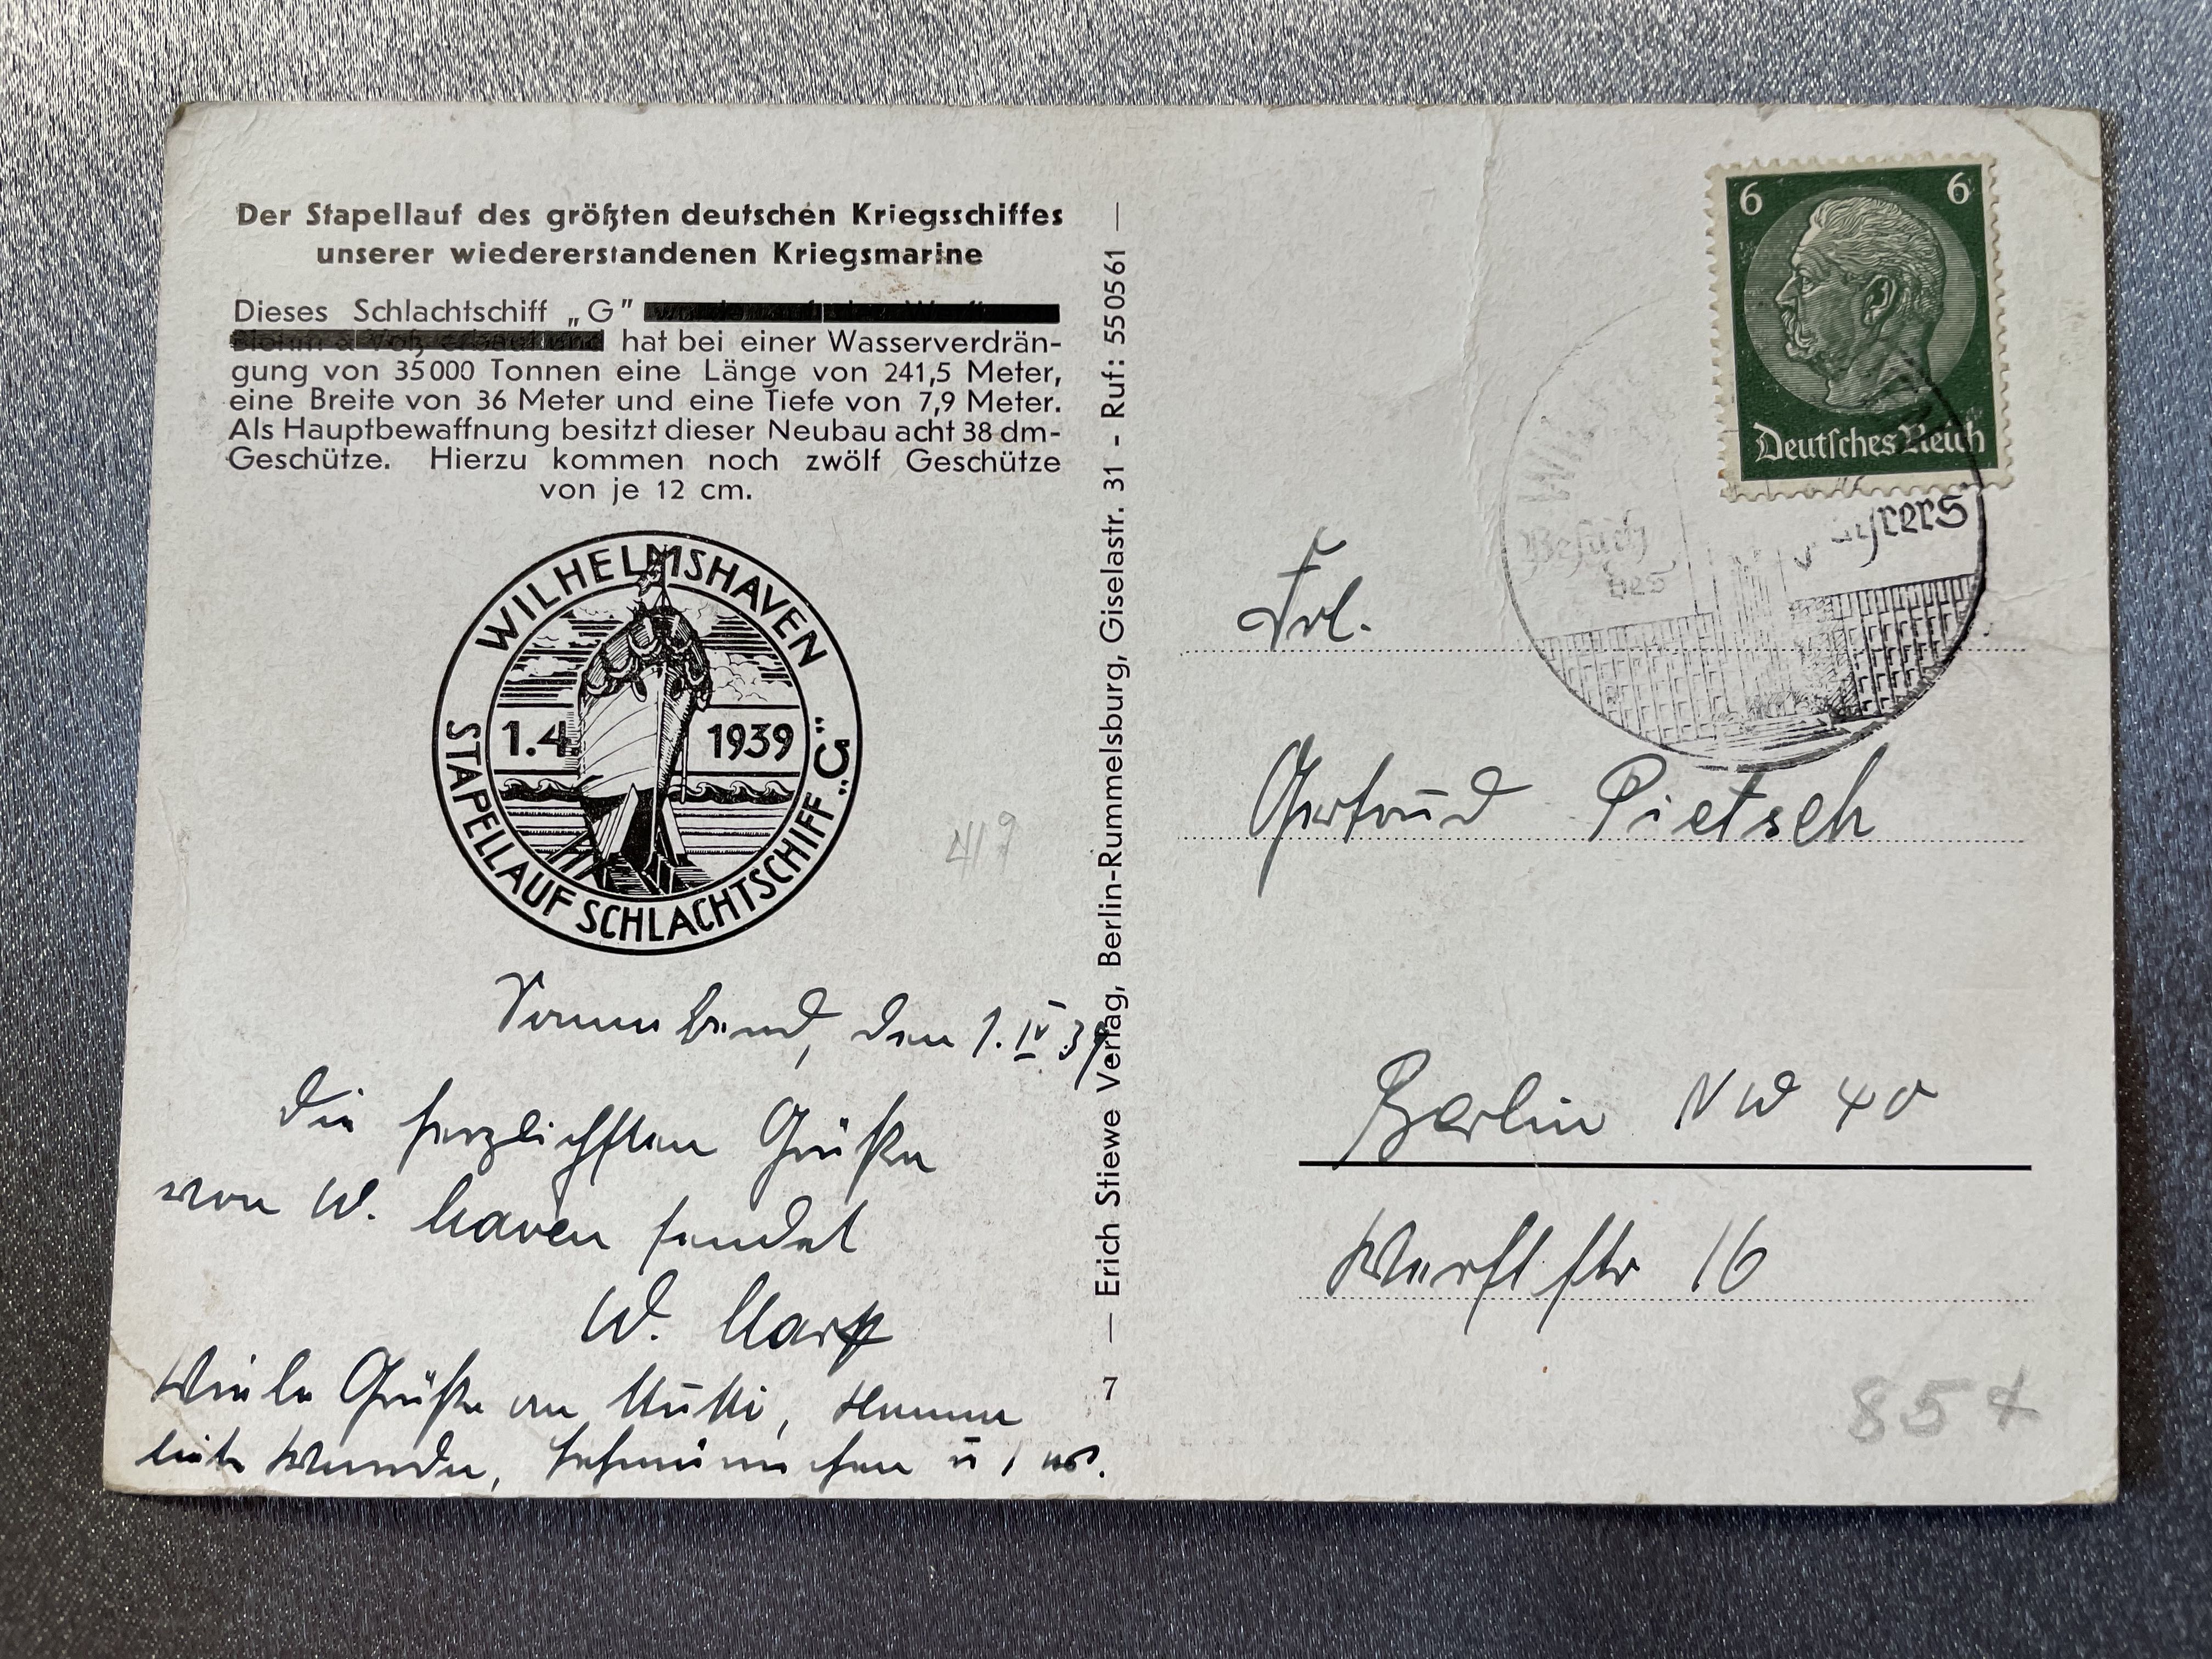 Der Stapellauf des größten deutschen Kriegsschiffes
unserer wiedererstandenen Kriegsmarine
Dieses Schlachtschiff „G"
hat bei einer Wasserverdrän-
gung von 35000 Tonnen eine Länge von 241,5 Meter,
eine Breite von 36 Meter und eine Tiefe von 7,9 Meter.
Als Hauptbewaffnung besitzt dieser Neubau acht 38 dm-
Geschütze. Hierzu kommen noch zwölf Geschütze
von je 12 cm.
WILHELMSHAVEN
1.4. 1939
STAPELLAUF SCHLACHTSCHIFF „G"
419
Sonnabend, den 1.IV.39
Die herzlichsten Grüße
von W. haven sendet
W.
Viele Grüße an Mutti,
u s w.
— Erich Stiewe Verlag, Berlin-Rummelsburg, Giselastr. 31 - Ruf: 550561 —
7
6 6
Deutsches Reich
Besuch
des
Frl.
Gertrud Pietsch
Berlin NW 40
Werftstr 16